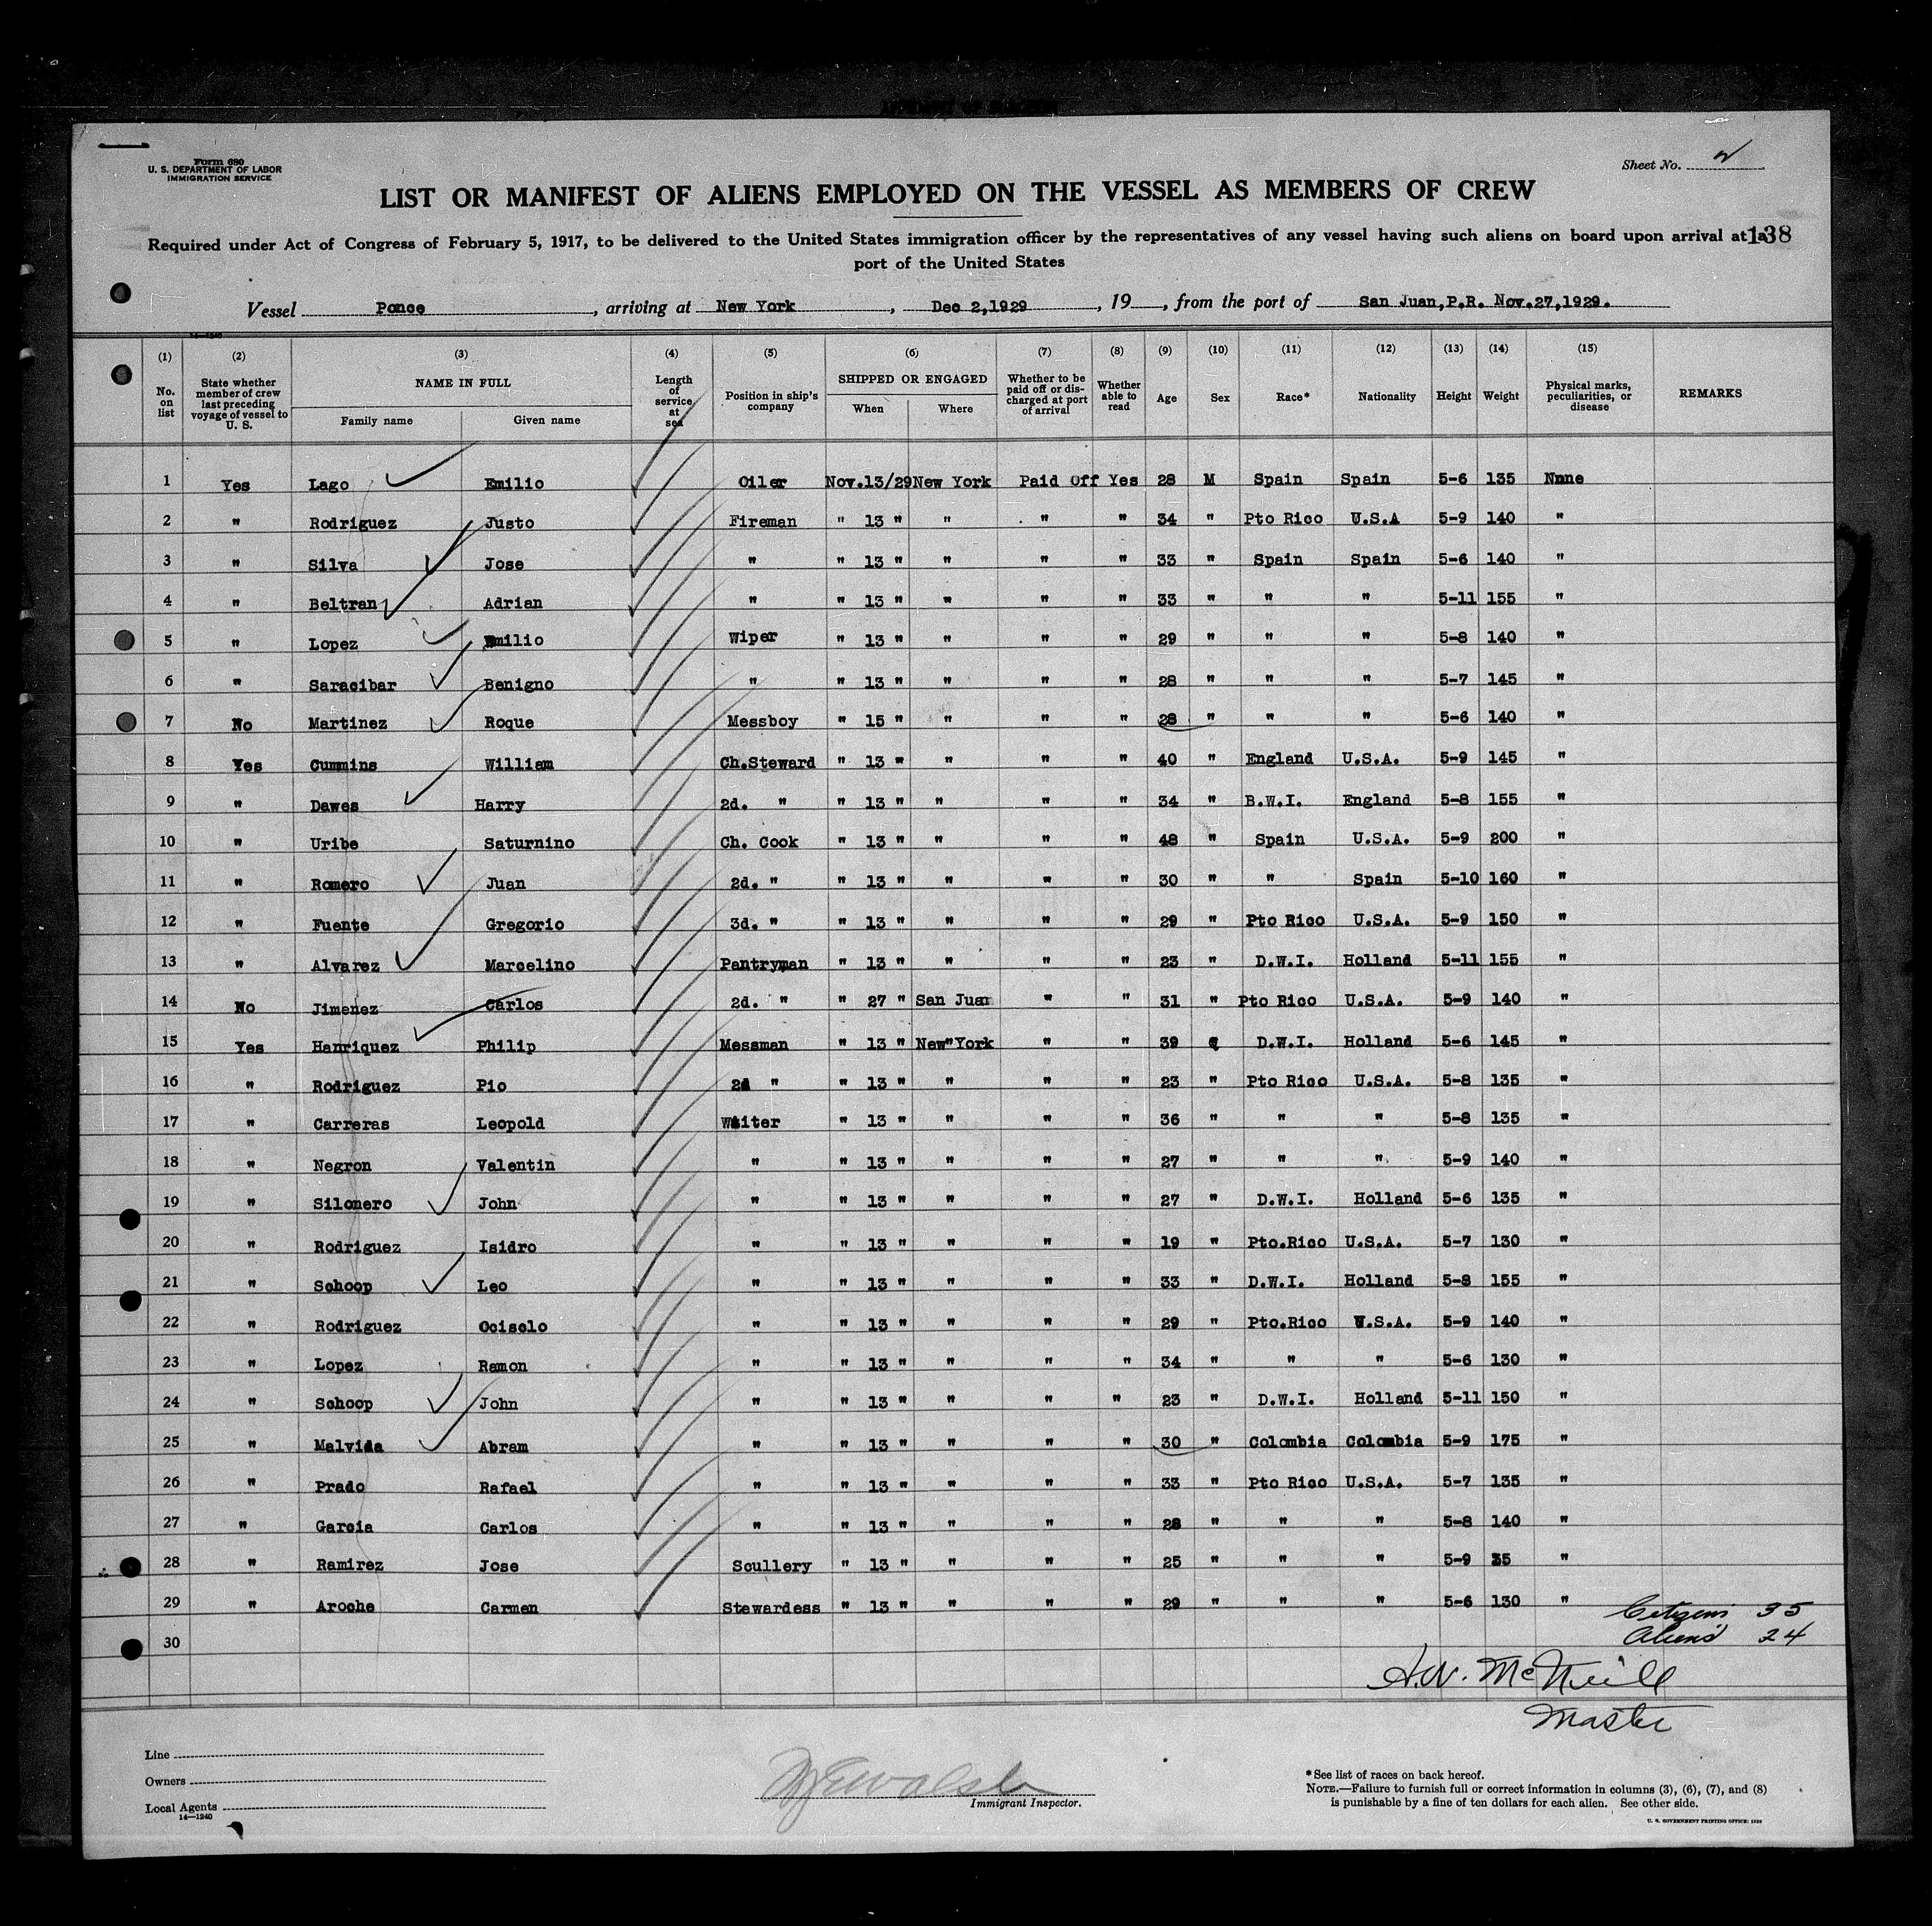 Form 680
U. S. DEPARTMENT OF LABOR
IMMIGRATION SERVICE
Sheet No. 2
LIST OR MANIFEST OF ALIENS EMPLOYED ON THE VESSEL AS MEMBERS OF CREW
Required under Act of Congress of February 5, 1917, to be delivered to the United States immigration officer by the representatives of any vessel having such aliens on board upon arrival at a
138
port of the United States
Vessel Ponce, arriving at New York, Dec 2,1929, 19, from the port of San Juan,P.R. Nov.27,1929.
14—1240
(1) (2) (3) (4) (5) (6) (7) (8) (9) (10) (11) (12) (13) (14) (15)
No. on list State whether member of crew last preceding voyage of vessel to U. S. NAME IN FULL Family name Given name Length of service at sea Position in ship's company SHIPPED OR ENGAGED When Where Whether to be paid off or discharged at port of arrival Whether able to read Age Sex Race* Nationality Height Weight Physical marks, peculiarities, or disease REMARKS
1 Yes Lago Emilio Oiler Nov.13/29 New York Paid Off Yes 28 M Spain Spain 5-6 135 Nnne
2 " Rodriguez Justo Fireman " 13 " " " " 34 " Pto Rico U.S.A 5-9 140 "
3 " Silva Jose " " 13 " " " " 33 " Spain Spain 5-6 140 "
4 " Beltran Adrian " " 13 " " " " 33 " " " 5-11 155 "
5 " Lopez Emilio Wiper " 13 " " " " 29 " " " 5-8 140 "
6 " Saracibar Benigno " " 13 " " " " 28 " " " 5-7 145 "
7 No Martinez Roque Messboy " 15 " " " " 28 " " " 5-6 140 "
8 Yes Cummins William Ch.Steward " 13 " " " " 40 " England U.S.A. 5-9 145 "
9 " Dawes Harry 2d. " " 13 " " " " 34 " B.W.I. England 5-8 155 "
10 " Uribe Saturnino Ch. Cook " 13 " " " " 48 " Spain U.S.A. 5-9 200 "
11 " Romero Juan 2d. " " 13 " " " " 30 " " Spain 5-10 160 "
12 " Fuente Gregorio 3d. " " 13 " " " " 29 " Pto Rico U.S.A. 5-9 150 "
13 " Alvarez Marcelino Pantryman " 13 " " " " 23 " D.W.I. Holland 5-11 155 "
14 No Jimenez Carlos 2d. " " 27 " San Juan " " 31 " Pto Rico U.S.A. 5-9 140 "
15 Yes Hanriquez Philip Messman " 13 " New"York " " 39 D.W.I. Holland 5-6 145 "
16 " Rodriguez Pio 2d " " 13 " " " " 23 " Pto Rico U.S.A. 5-8 135 "
17 " Carreras Leopold Waiter " 13 " " " " 36 " " " 5-8 135 "
18 " Negron Valentin " " 13 " " " " 27 " " " 5-9 140 "
19 " Silonero John " " 13 " " " " 27 " D.W.I. Holland 5-6 135 "
20 " Rodriguez Isidro " " 13 " " " " 19 " Pto.Rico U.S.A. 5-7 130 "
21 " Schoop Leo " " 13 " " " " 33 " D.W.I. Holland 5-8 155 "
22 " Rodriguez Ociselo " " 13 " " " " 29 " Pto.Rico U.S.A. 5-9 140 "
23 " Lopez Ramon " " 13 " " " " 34 " " " 5-6 130 "
24 " Schoop John " " 13 " " " " 23 " D.W.I. Holland 5-11 150 "
25 " Malvida Abram " " 13 " " " " 30 " Colombia Colombia 5-9 175 "
26 " Prado Rafael " " 13 " " " " 33 " Pto Rico U.S.A. 5-7 135 "
27 " Garcia Carlos " " 13 " " " " 28 " " " 5-8 140 "
28 " Ramirez Jose Scullery " 13 " " " " 25 " " " 5-9 35 "
29 " Aroche Carmen Stewardess " 13 " " " " 29 " " " 5-6 130 "
30
Citizens 35
Aliens 24
A.W. McNeill
Master
Line
Owners
Local Agents
14—1240
Immigrant Inspector.
*See list of races on back hereof.
NOTE.—Failure to furnish full or correct information in columns (3), (6), (7), and (8)
is punishable by a fine of ten dollars for each alien. See other side.
U. S. GOVERNMENT PRINTING OFFICE: 1929